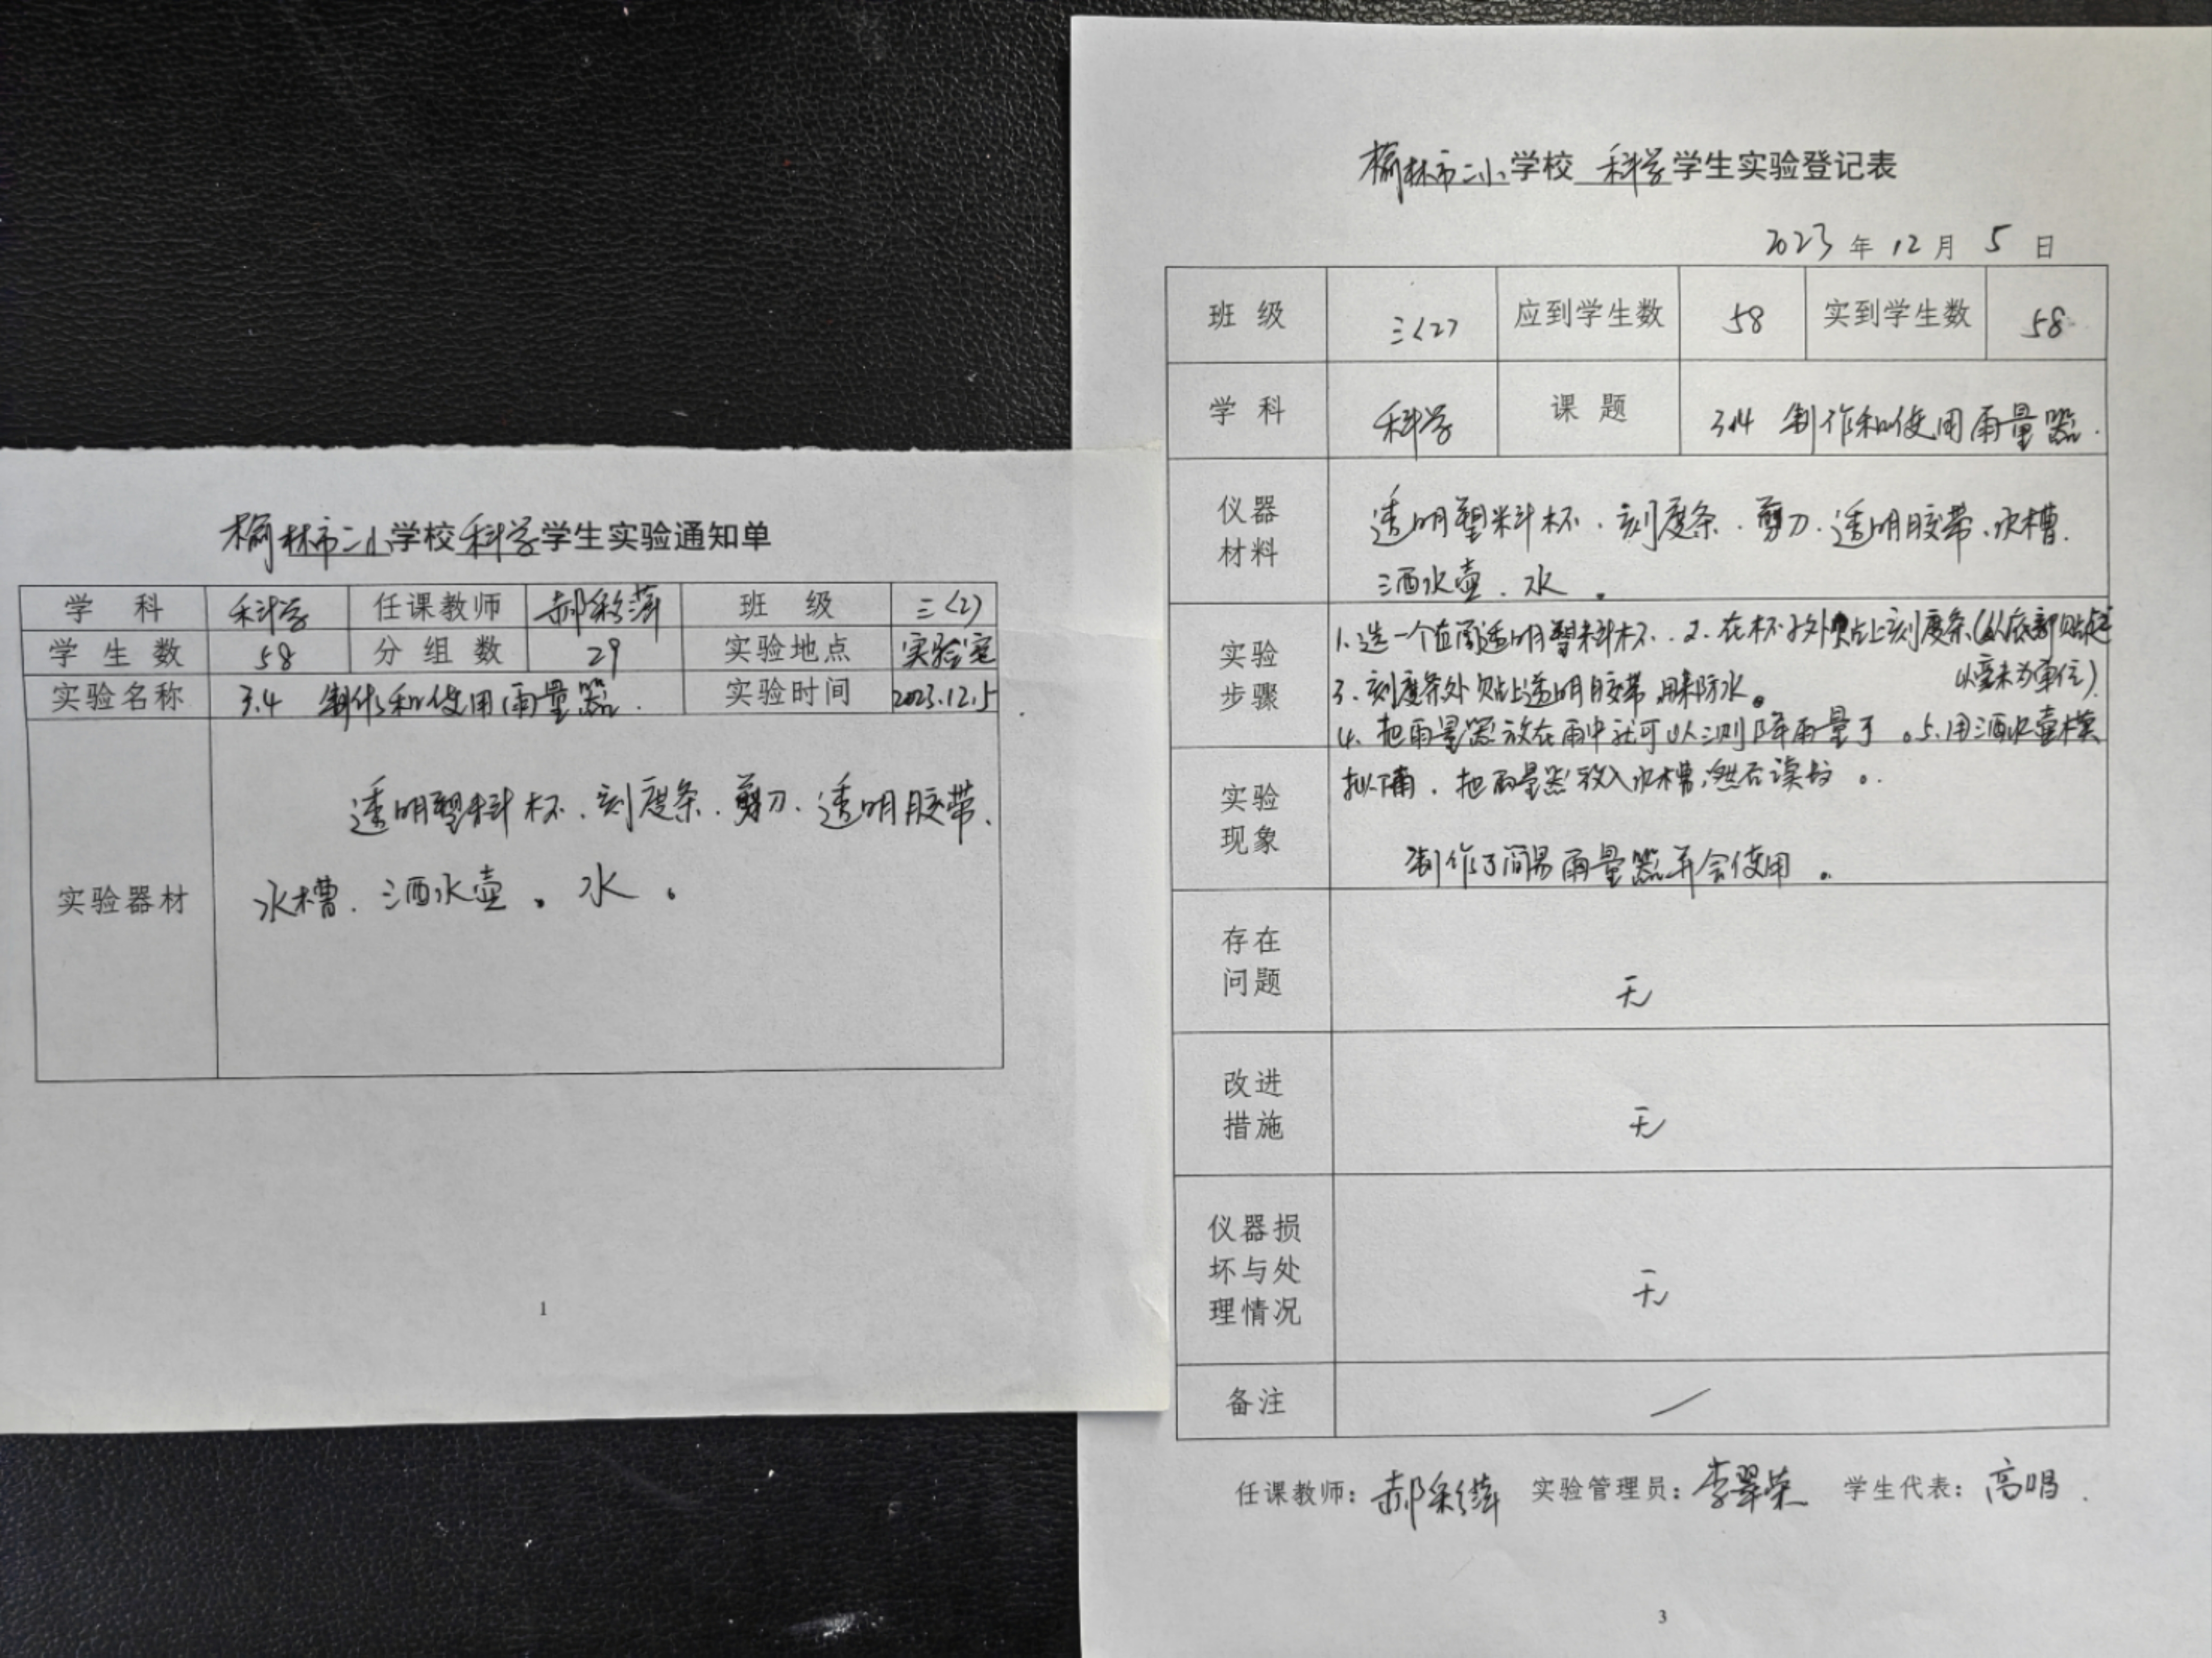 榆林市二小学校科学学生实验通知单
学 科 科学 任课教师 郝彩萍 班 级 三〈2〉
学 生 数 58 分 组 数 29 实验地点 实验室
实验名称 3.4 制作和使用雨量器. 实验时间 2023.12.5
透明塑料杯、刻度条、剪刀、透明胶带、
实验器材
水槽、洒水壶。水。
1
榆林市二小学校 科学学生实验登记表
2023年12月5日
班 级 三〈2〉 应到学生数 58 实到学生数 58
学 科 科学 课 题 3.4 制作和使用雨量器.
仪器
材料
透明塑料杯、刻度条、剪刀、透明胶带、水槽.
洒水壶、水。
实验
步骤
1.选一个直筒透明塑料杯.2.在杯子外贴上刻度条(从底部贴起
以毫米为单位)
3.刻度条外贴上透明胶带用来防水。
4.把雨量器放在雨中就可以测降雨量了。5.用洒水壶模
拟下雨,把雨量器放入水槽,然后读数。
实验
现象
制作了简易雨量器并会使用。
存在
问题
无
改进
措施
无
仪器损
坏与处
理情况
无
备注 /
任课教师:郝彩萍 实验管理员:李翠荣 学生代表:高唱.
3